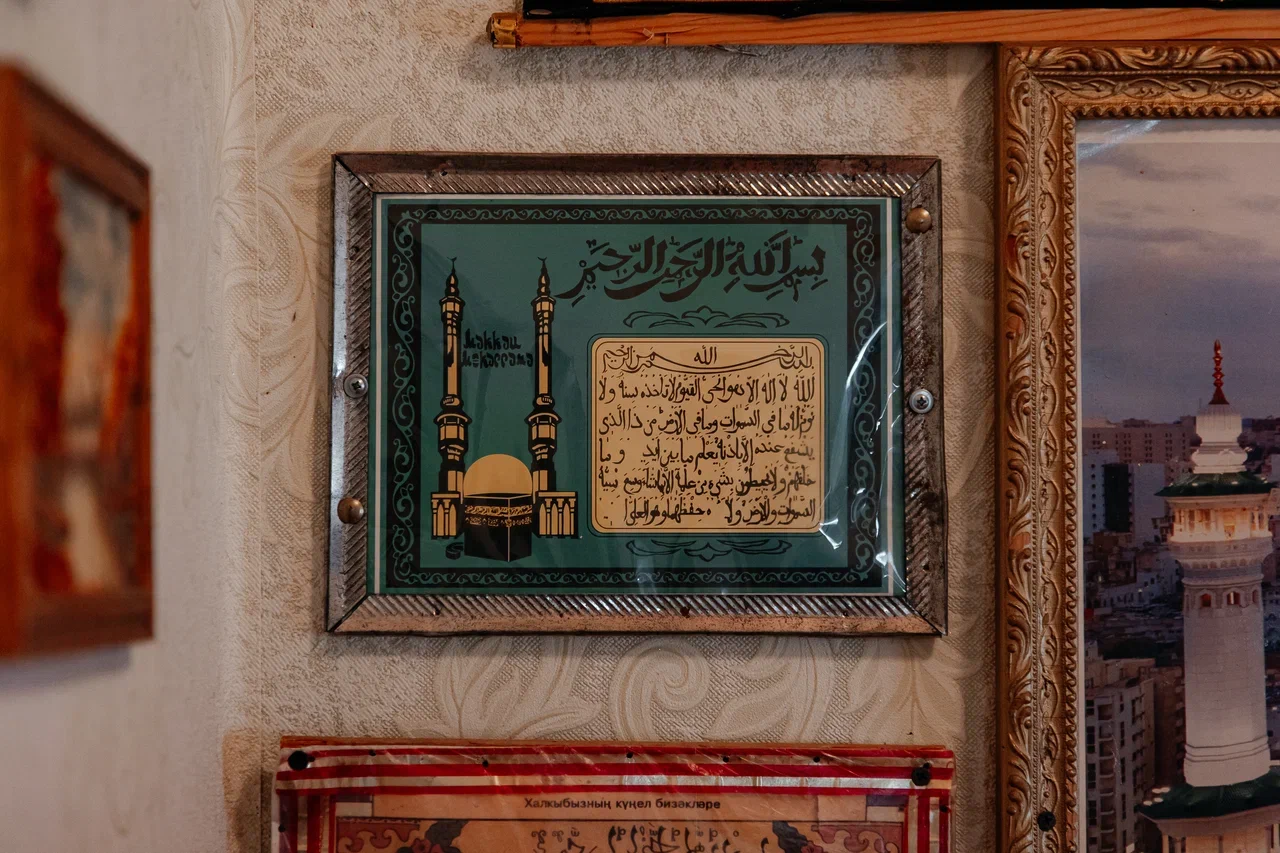 بسم الله الرحمن الرحيم
Makkau
Mukarrama
بسم الله الرحمن الرحيم
الله لا اله الا هو الحى القيوم لا تأخذه سنة ولا
نوم له ما فى السموات وما فى الارض من ذا الذى
يشفع عنده الا باذنه يعلم ما بين ايد وما
خلفهم ولا يحيطون بشىء من علمه الا بماشاء وسع
السموات والارض ولا ه حفظهما وهو العلى ا
Халкыбызның күңел бизәкләре